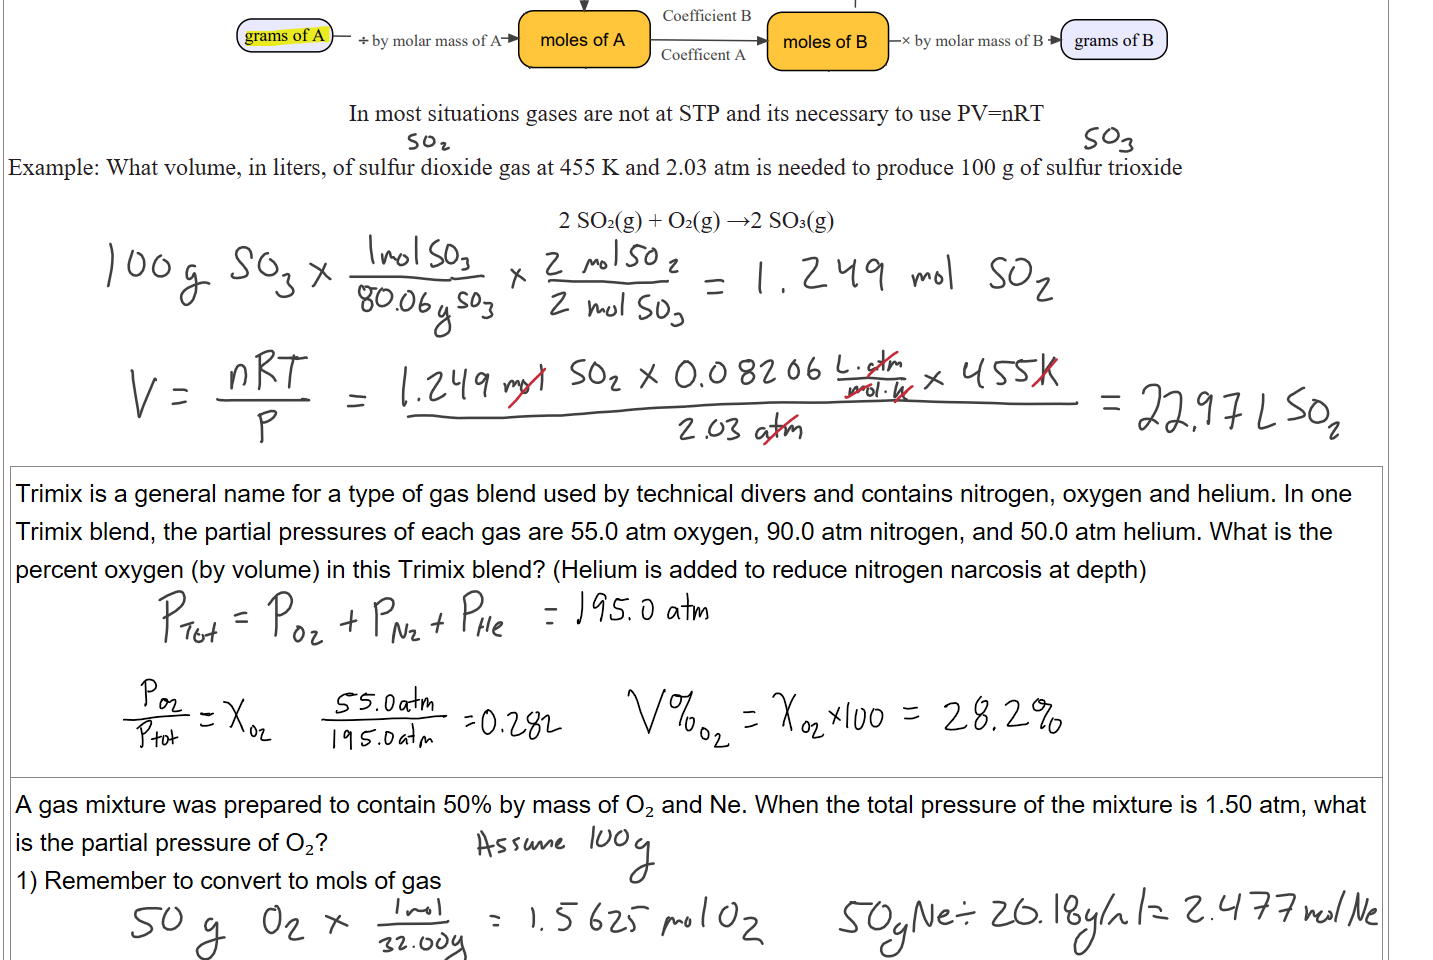 Coefficient B
grams of A ÷ by molar mass of A moles of A moles of B × by molar mass of B grams of B
Coefficent A
In most situations gases are not at STP and its necessary to use PV=nRT
SO₂ SO₃
Example: What volume, in liters, of sulfur dioxide gas at 455 K and 2.03 atm is needed to produce 100 g of sulfur trioxide
2 SO₂(g) + O₂(g) →2 SO₃(g)
1 mol SO₃ 2 mol SO₂
100 g SO₃ × × = 1.249 mol SO₂
80.06 g SO₃ 2 mol SO₃
V = nRT = 1.249 mol SO₂ × 0.08206 L·atm × 455 K = 22.97 L SO₂
mol·K
P 2.03 atm
Trimix is a general name for a type of gas blend used by technical divers and contains nitrogen, oxygen and helium. In one
Trimix blend, the partial pressures of each gas are 55.0 atm oxygen, 90.0 atm nitrogen, and 50.0 atm helium. What is the
percent oxygen (by volume) in this Trimix blend? (Helium is added to reduce nitrogen narcosis at depth)
P Tot = P O₂ + P N₂ + P He = 195.0 atm
P O₂ = X O₂ 55.0 atm = 0.282 V% O₂ = X O₂ ×100 = 28.2%
P tot 195.0 atm
A gas mixture was prepared to contain 50% by mass of O₂ and Ne. When the total pressure of the mixture is 1.50 atm, what
is the partial pressure of O₂? Assume 100 g
1) Remember to convert to mols of gas
50 g O₂ × 1 mol = 1.5625 mol O₂ 50 g Ne ÷ 20.18 g/n/= 2.477 mol Ne
32.00 g